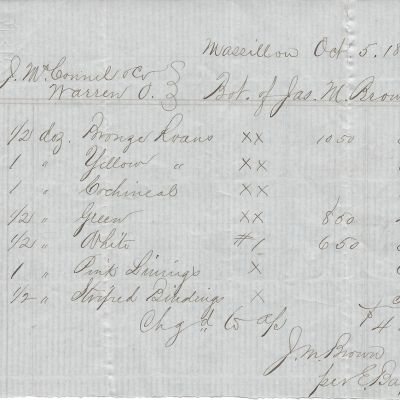 Massillon Oct. 5. 18
J. McConnel & Co
Warren O.
Bot. of Jas. M. Brow
1/2 doz. Bronze Roans XX 10 50
1 " Yellow " XX
1 " Cochineal XX
1/2 " Green XX 8 00
1/2 " White #1 6 50
1 " Pink Linings X
1/2 " Striped Bindings X
Chgd to a/c
J. M Brown
per E.